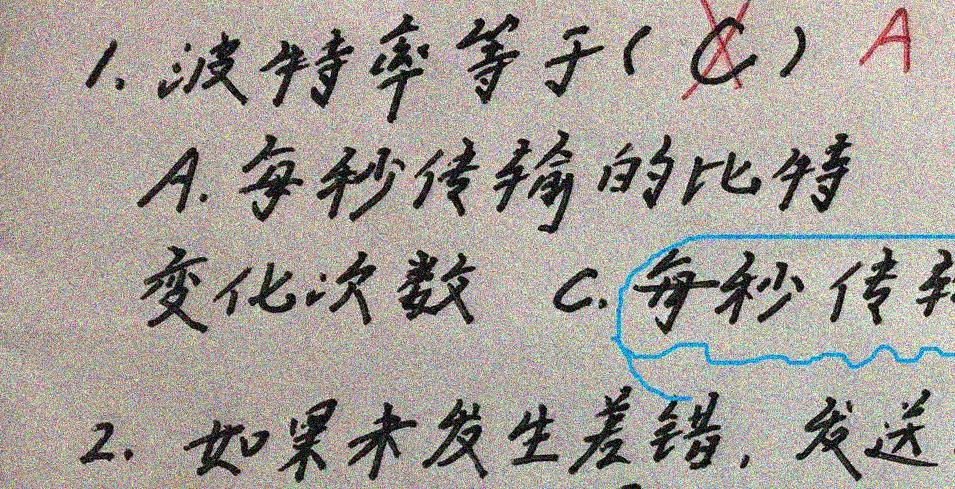 1. 波特率等于( C ) A
A. 每秒传输的比特
变化次数 C. 每秒传
2. 如果未发生差错, 发送